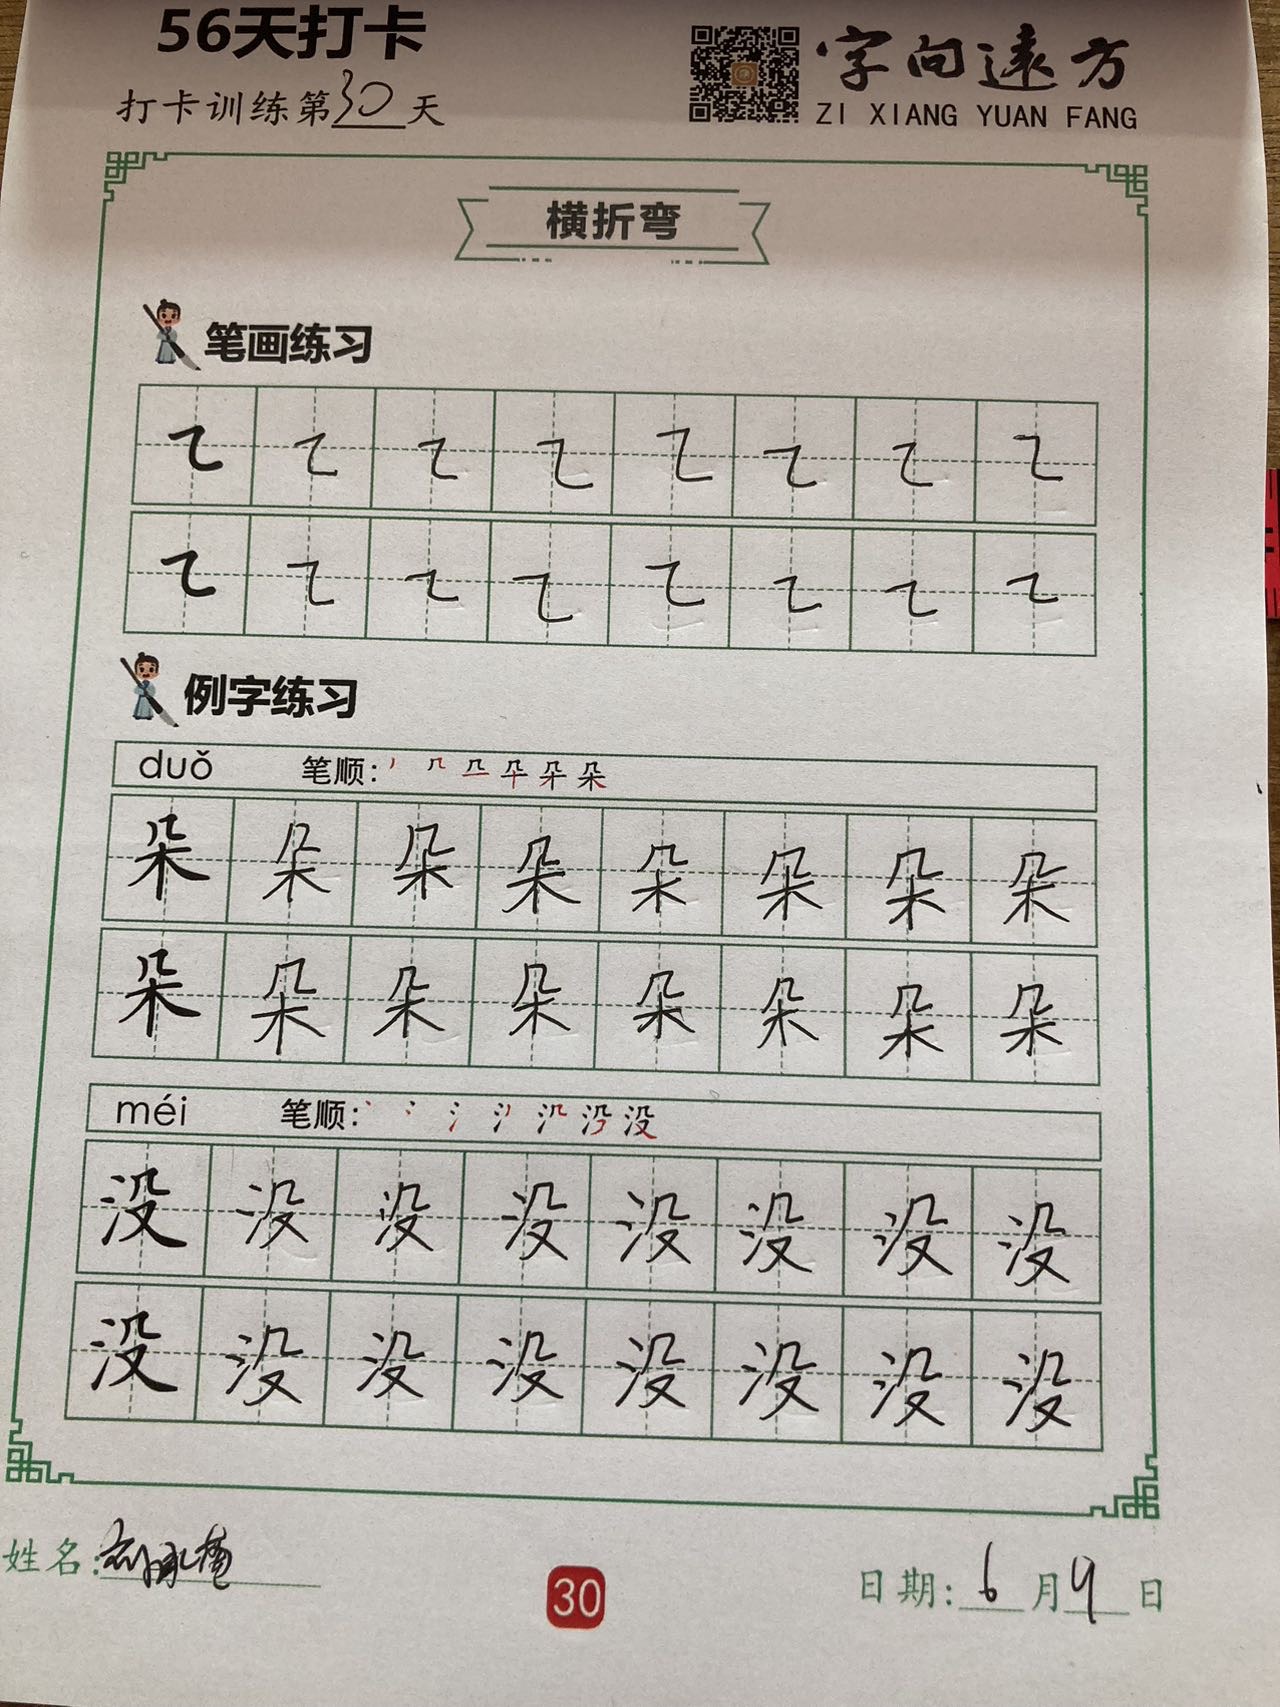 56天打卡
字向遠方
打卡训练第30天
ZI XIANG YUAN FANG
横折弯
笔画练习
㇍ ㇍ ㇍ ㇍ ㇍ ㇍ ㇍ ㇍
㇍ ㇍ ㇍ ㇍ ㇍ ㇍ ㇍ ㇍
例字练习
duǒ 笔顺: 朵
朵 朵 朵 朵 朵 朵 朵 朵
朵 朵 朵 朵 朵 朵 朵 朵
méi 笔顺: 没
没 没 没 没 没 没 没 没
没 没 没 没 没 没 没 没
姓名:
30
日期: 6月9日